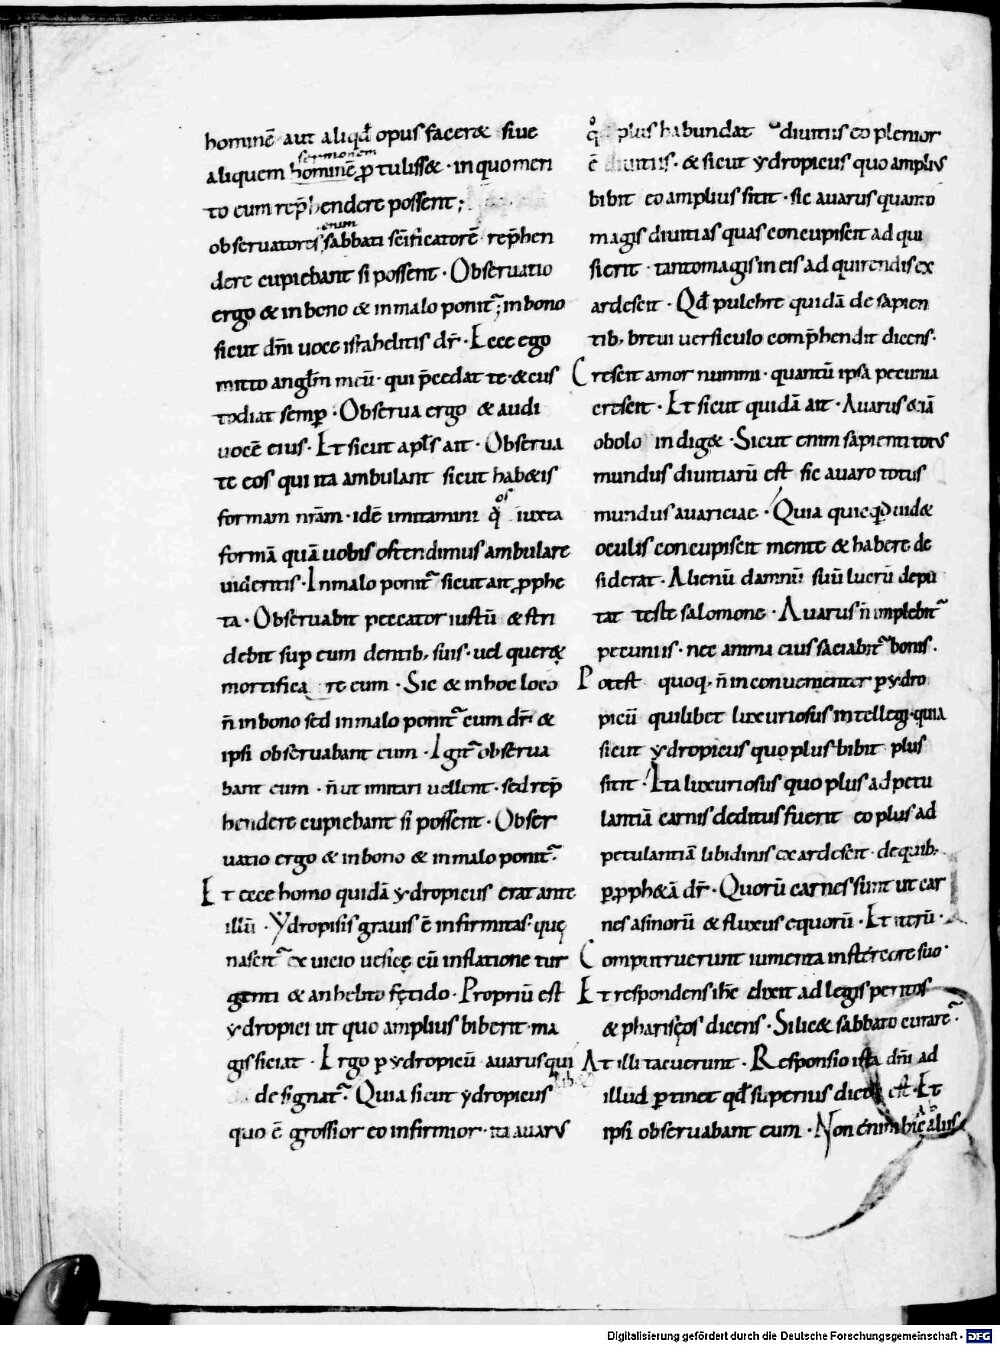 hominē aut aliqđ opus facere & siue
sermonem
aliquem hominē ꝓtulisse& · in quo men
to eum rep̄hendere possent;
enim
obseruatores sabbati sc̄ificatorē rep̄hen
dere cupiebant si possent · Obseruatio
ergo & in bono & in malo ponit̃; in bono
sicut dn̄i uoce israhelitis dr̄ · Ecce ego
mitto angl̄m meū · qui p̄cedat te · & cus
todiat semꝑ · Obserua ergo & audi
uocē eius · Et sicut apl̄s ait · Obserua
te eos qui ita ambulant sicut hab&is
formam nr̄am · idē imitamini q os iuxta
formā quā uobis ostendimus ambulare
uidentis · In malo ponit̃ sicut ait ꝓphe
ta · Obseruabit peccator iustū & stri
debit suꝑ eum dentib; suis · uel querę
mortificare eum · Sic & in hoc loco
n̄ in bono sed in malo ponit̃ cum dr̄ · &
ipsi obseruabant eum · Igit̃ obserua
bant eum · n̄ ut imitari uellent · sed rep̄
hendere cupiebant si possent · Obser
uatio ergo & in bono & in malo ponit̃ ·
Et ecce homo quidā ydropicus erat ante
illū · Ydropisis grauis ē infirmitas · quę
nascit̃ ex uicio uesicę cū inflatione tur
genti & anhelito fętido · Propriū est
ydropici ut quo amplius biberit · ma
gis siciat · Ergo ꝑ ydropicū auarus qui
designat̃ · Quia sicut ydropicus
quo ē grossior eo infirmior · ita auarus
qo plus habundat diuitiis eo plenior
ē diuitiis · & sicut ydropicus quo amplius
bibit eo amplius sitit · sic auarus quanto
magis diuitias quas concupiscit ad qui
sierit · tanto magis in eis adquirendis ex
ardescit · Qđ pulchre quidā de sapien
tib; breui uersiculo comp̄hendit dicens ·
Crescit amor nummi · quantū ipsa pecunia
crescit · Et sicut quidā ait · Auarus & iā
obolo indig& · Sicut enim sapienti totus
mundus diuitiarū est sic auaro totus
mundus auariciae · Quia quicqđ uid&
oculis concupiscit mente & habere de
siderat · Alienū damnū suū lucrū depu
tat teste salomone · Auarus n̄ implebit̃
pecuniis · nec anima eius saciabit̃ bonis ·
Potest quoq; n̄ inconuenienter ꝑ ydro
picū quilibet luxuriosus intellegi · quia
sicut ydropicus quo plus bibit plus
sitit · Ita luxuriosus quo plus ad petu
lantiā carnis deditus fuerit eo plus ad
petulantiā libidinis exardescit · de quib;
ꝑ ꝓph&ā dr̄ · Quorū carnes sunt ut car
nes asinorū & fluxus equorū · Et iterū ·
Computruerunt iumenta in stercore suo ·
Et respondens ihc̄ dixit ad legis peritos
& pharisęos dicens · Si lic& sabbato curare ·
At illi tacuerunt · Responsio ista dn̄i ad
illud ꝑtinet qđ superius dictū est · Et
ipsi obseruabant eum · Non enim hic alius